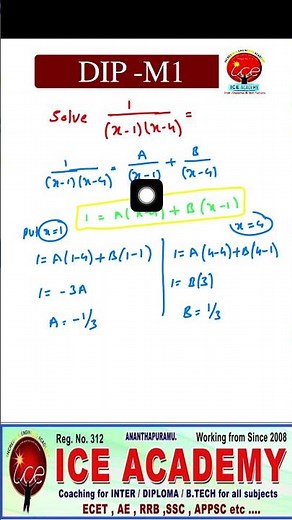 DIP -M1
ICE ACADEMY
Solve 1/((x-1)(x-4)) =
1/((x-1)(x-4)) = A/(x-1) + B/(x-4)
1 = A(x-4) + B(x-1)
put x=1
x=4
1 = A(1-4) + B(1-1)
1 = -3A
A = -1/3
1 = A(4-4) + B(4-1)
1 = B(3)
B = 1/3
Reg. No. 312
ANANTHAPURAMU.
Working from Since 2008
ice
ICE ACADEMY
Coaching for INTER / DIPLOMA / B.TECH for all subjects
ECET , AE , RRB ,SSC , APPSC etc ....